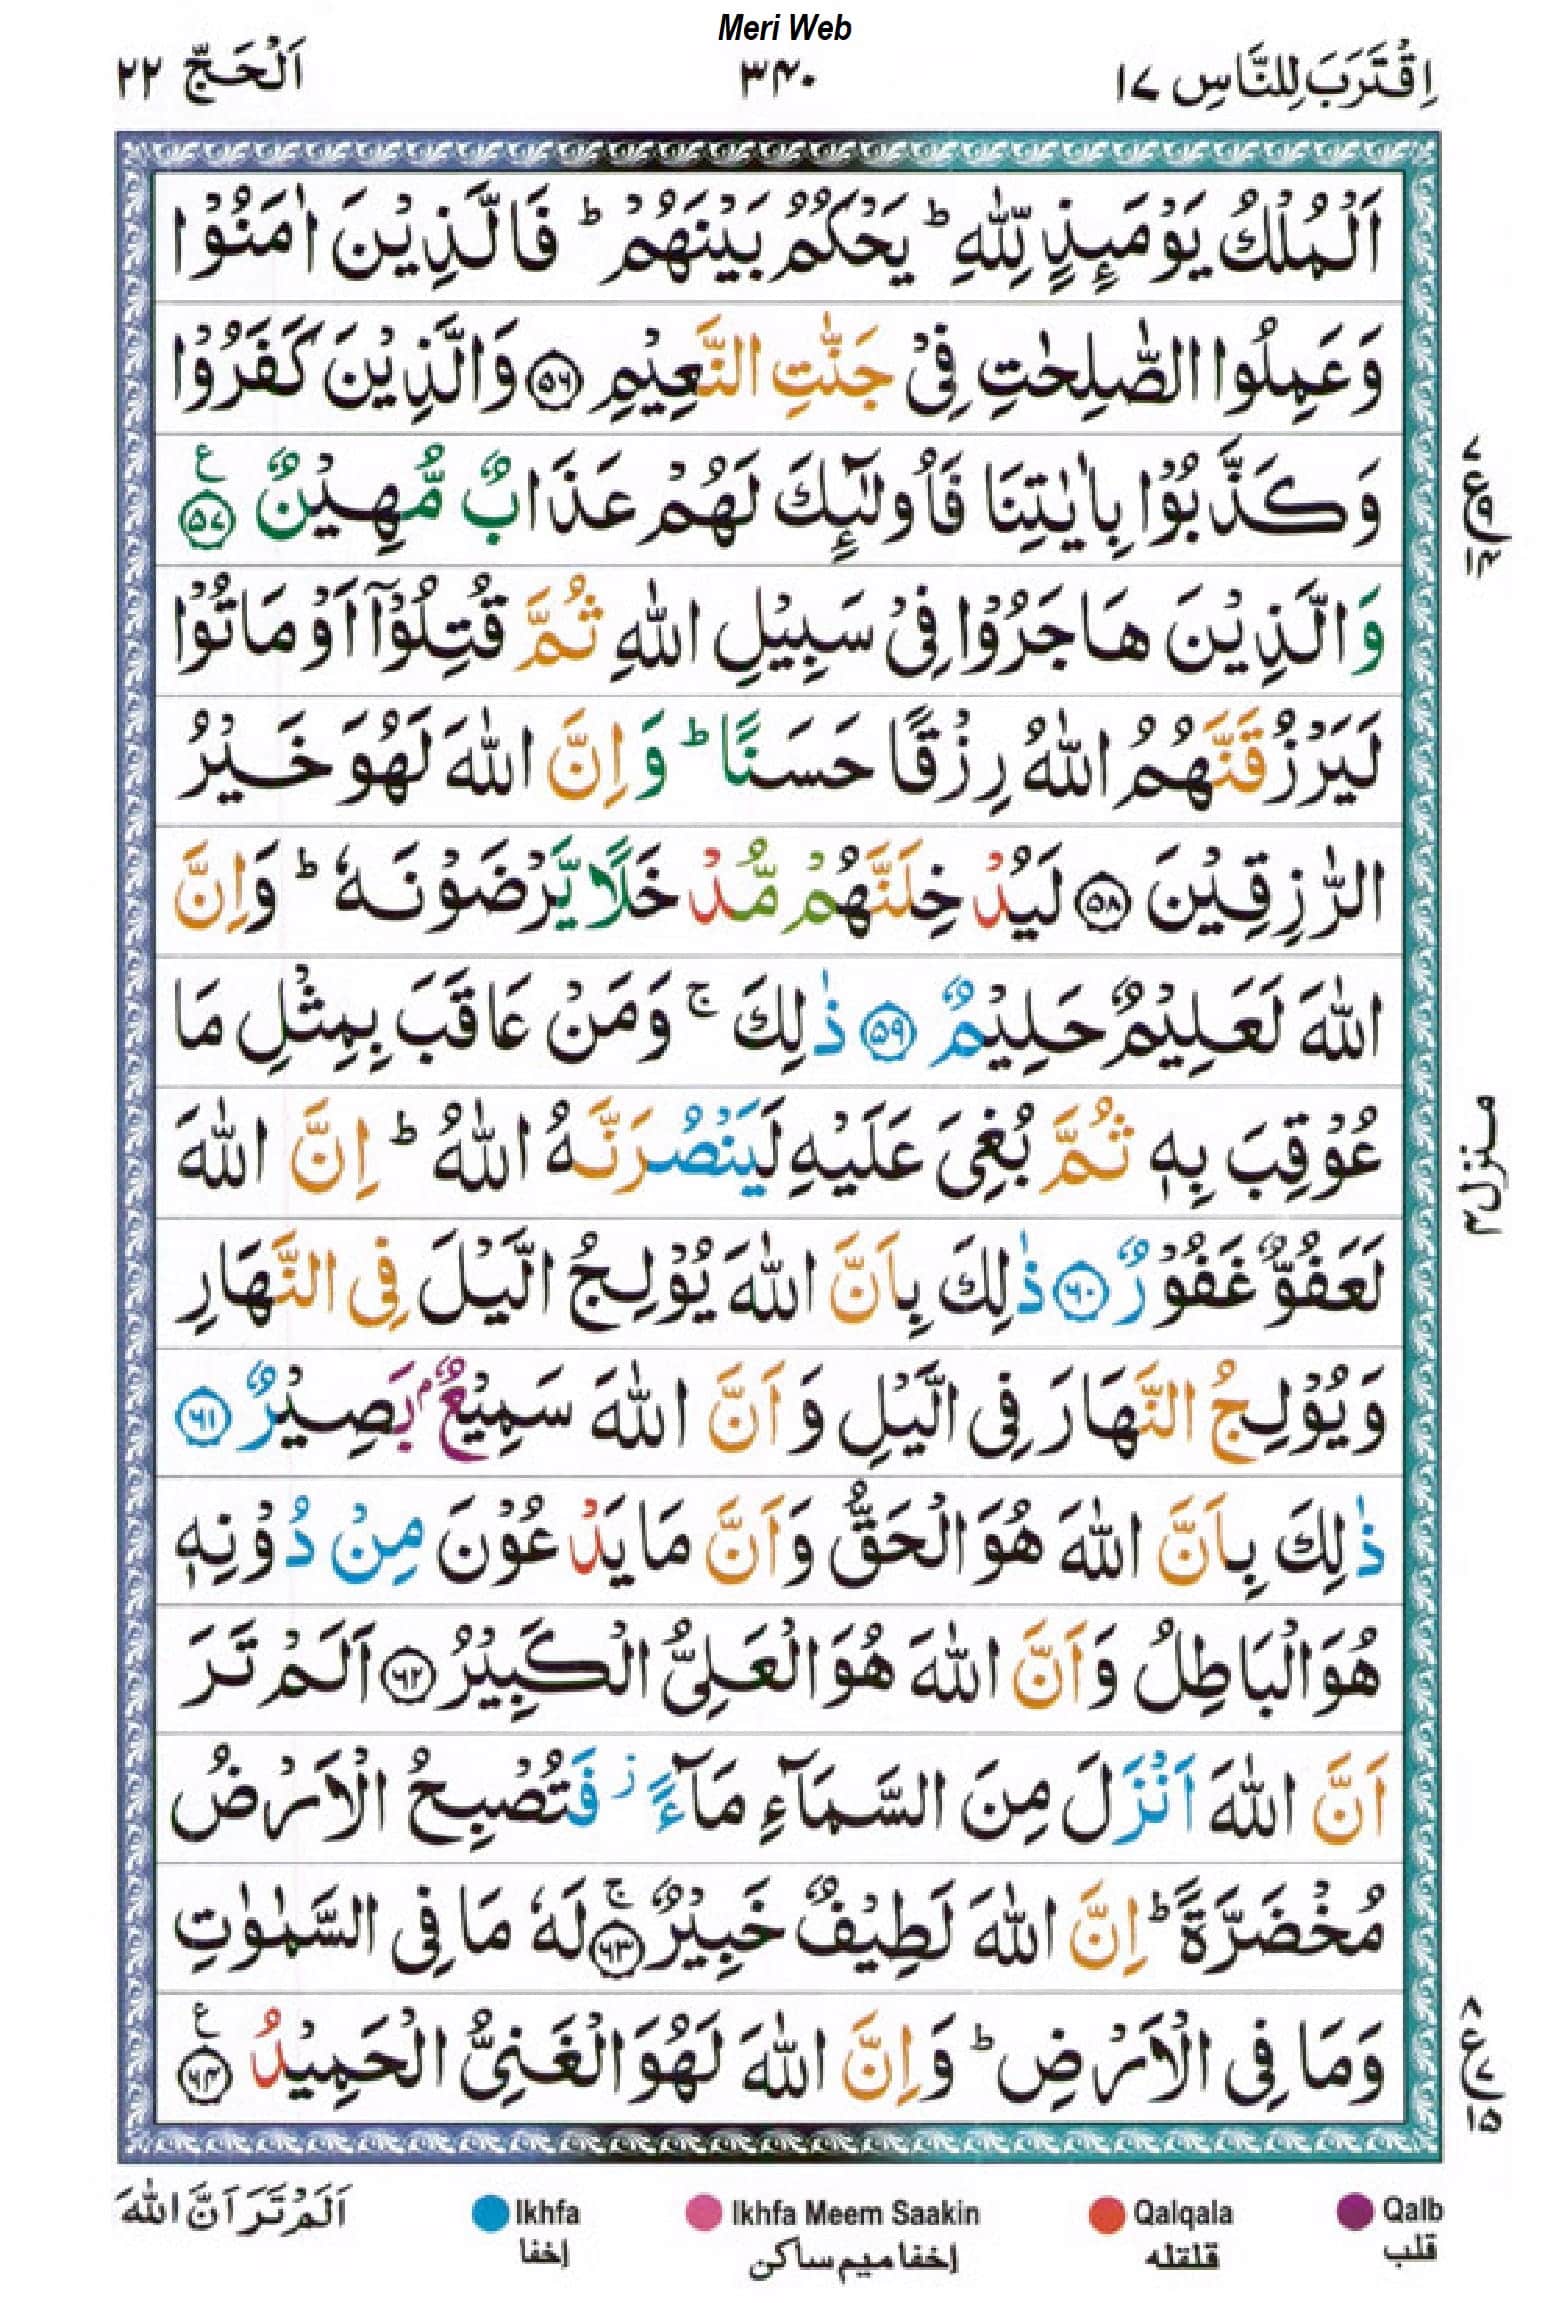 Meri Web
اِقْتَرَبَ لِلنَّاسِ ١٧
٣۴٠
اَلْحَجّ ٢٢
اَلْمُلْكُ يَوْمَىِٕذٍ لِّلّٰهِ ؕ يَحْكُمُ بَيْنَهُمْ ؕ فَالَّذِيْنَ اٰمَنُوْا
وَعَمِلُوا الصّٰلِحٰتِ فِىْ جَنّٰتِ النَّعِيْمِ ۵۶ وَالَّذِيْنَ كَفَرُوْا
وَكَذَّبُوْا بِاٰيٰتِنَا فَاُولٰٓىِٕكَ لَهُمْ عَذَابٌ مُّهِيْنٌ ۵۷ ع
وَالَّذِيْنَ هَاجَرُوْا فِىْ سَبِيْلِ اللّٰهِ ثُمَّ قُتِلُوْۤا اَوْ مَاتُوْا
لَيَرْزُقَنَّهُمُ اللّٰهُ رِزْقًا حَسَنًا ؕ وَاِنَّ اللّٰهَ لَهُوَ خَيْرُ
الرّٰزِقِيْنَ ۵۸ لَيُدْخِلَنَّهُمْ مُّدْخَلًا يَّرْضَوْنَهٗ ؕ وَاِنَّ
اللّٰهَ لَعَلِيْمٌ حَلِيْمٌ ۵۹ ذٰلِكَ ۚ وَمَنْ عَاقَبَ بِمِثْلِ مَا
عُوْقِبَ بِهٖ ثُمَّ بُغِىَ عَلَيْهِ لَيَنْصُرَنَّهُ اللّٰهُ ؕ اِنَّ اللّٰهَ
لَعَفُوٌّ غَفُوْرٌ ۶۰ ذٰلِكَ بِاَنَّ اللّٰهَ يُوْلِجُ الَّيْلَ فِى النَّهَارِ
وَيُوْلِجُ النَّهَارَ فِى الَّيْلِ وَاَنَّ اللّٰهَ سَمِيْعٌۢ بَصِيْرٌ ۶۱
ذٰلِكَ بِاَنَّ اللّٰهَ هُوَ الْحَقُّ وَاَنَّ مَا يَدْعُوْنَ مِنْ دُوْنِهٖ
هُوَ الْبَاطِلُ وَاَنَّ اللّٰهَ هُوَ الْعَلِىُّ الْكَبِيْرُ ۶۲ اَلَمْ تَرَ
اَنَّ اللّٰهَ اَنْزَلَ مِنَ السَّمَآءِ مَآءً ؗ فَتُصْبِحُ الْاَرْضُ
مُخْضَرَّةً ؕ اِنَّ اللّٰهَ لَطِيْفٌ خَبِيْرٌ ۚ ۶۳ لَهٗ مَا فِى السَّمٰوٰتِ
وَمَا فِى الْاَرْضِ ؕ وَاِنَّ اللّٰهَ لَهُوَ الْغَنِىُّ الْحَمِيْدُ ۶۴ ع
٧
ع ٩
١۴
منزل ۴
٨
ع ٧
١۵
اَلَمْ تَرَ اَنَّ اللّٰهَ
Ikhfa
إخفا
Ikhfa Meem Saakin
إخفا ميم ساكن
Qalqala
قلقله
Qalb
قلب